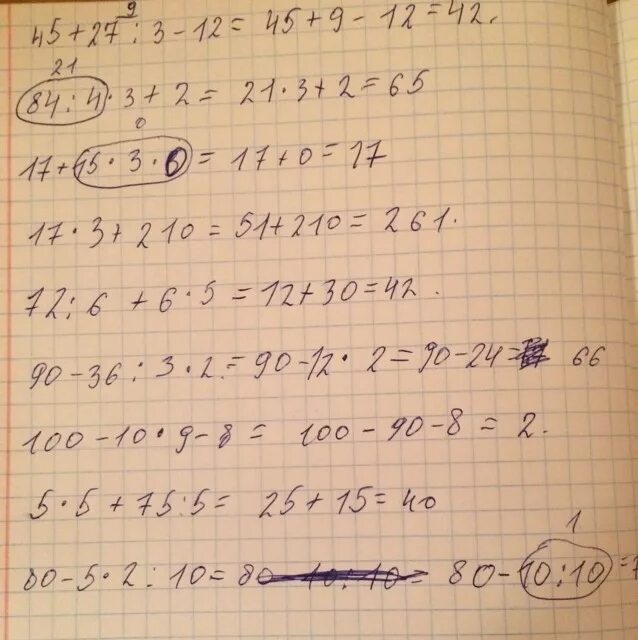 9
45+27:3-12= 45+9-12=42.
21
84:4·3+2= 21·3+2=65
0
17+15·3·0= 17+0=17
17·3+210=51+210=261.
72:6+6·5=12+30=42.
90-36:3·2=90-12·2=90-24= 66
100-10·9-8= 100-90-8=2.
5·5+75:5= 25+15=40
1
80-5·2:10= 80-10:10= 80-10:10=7